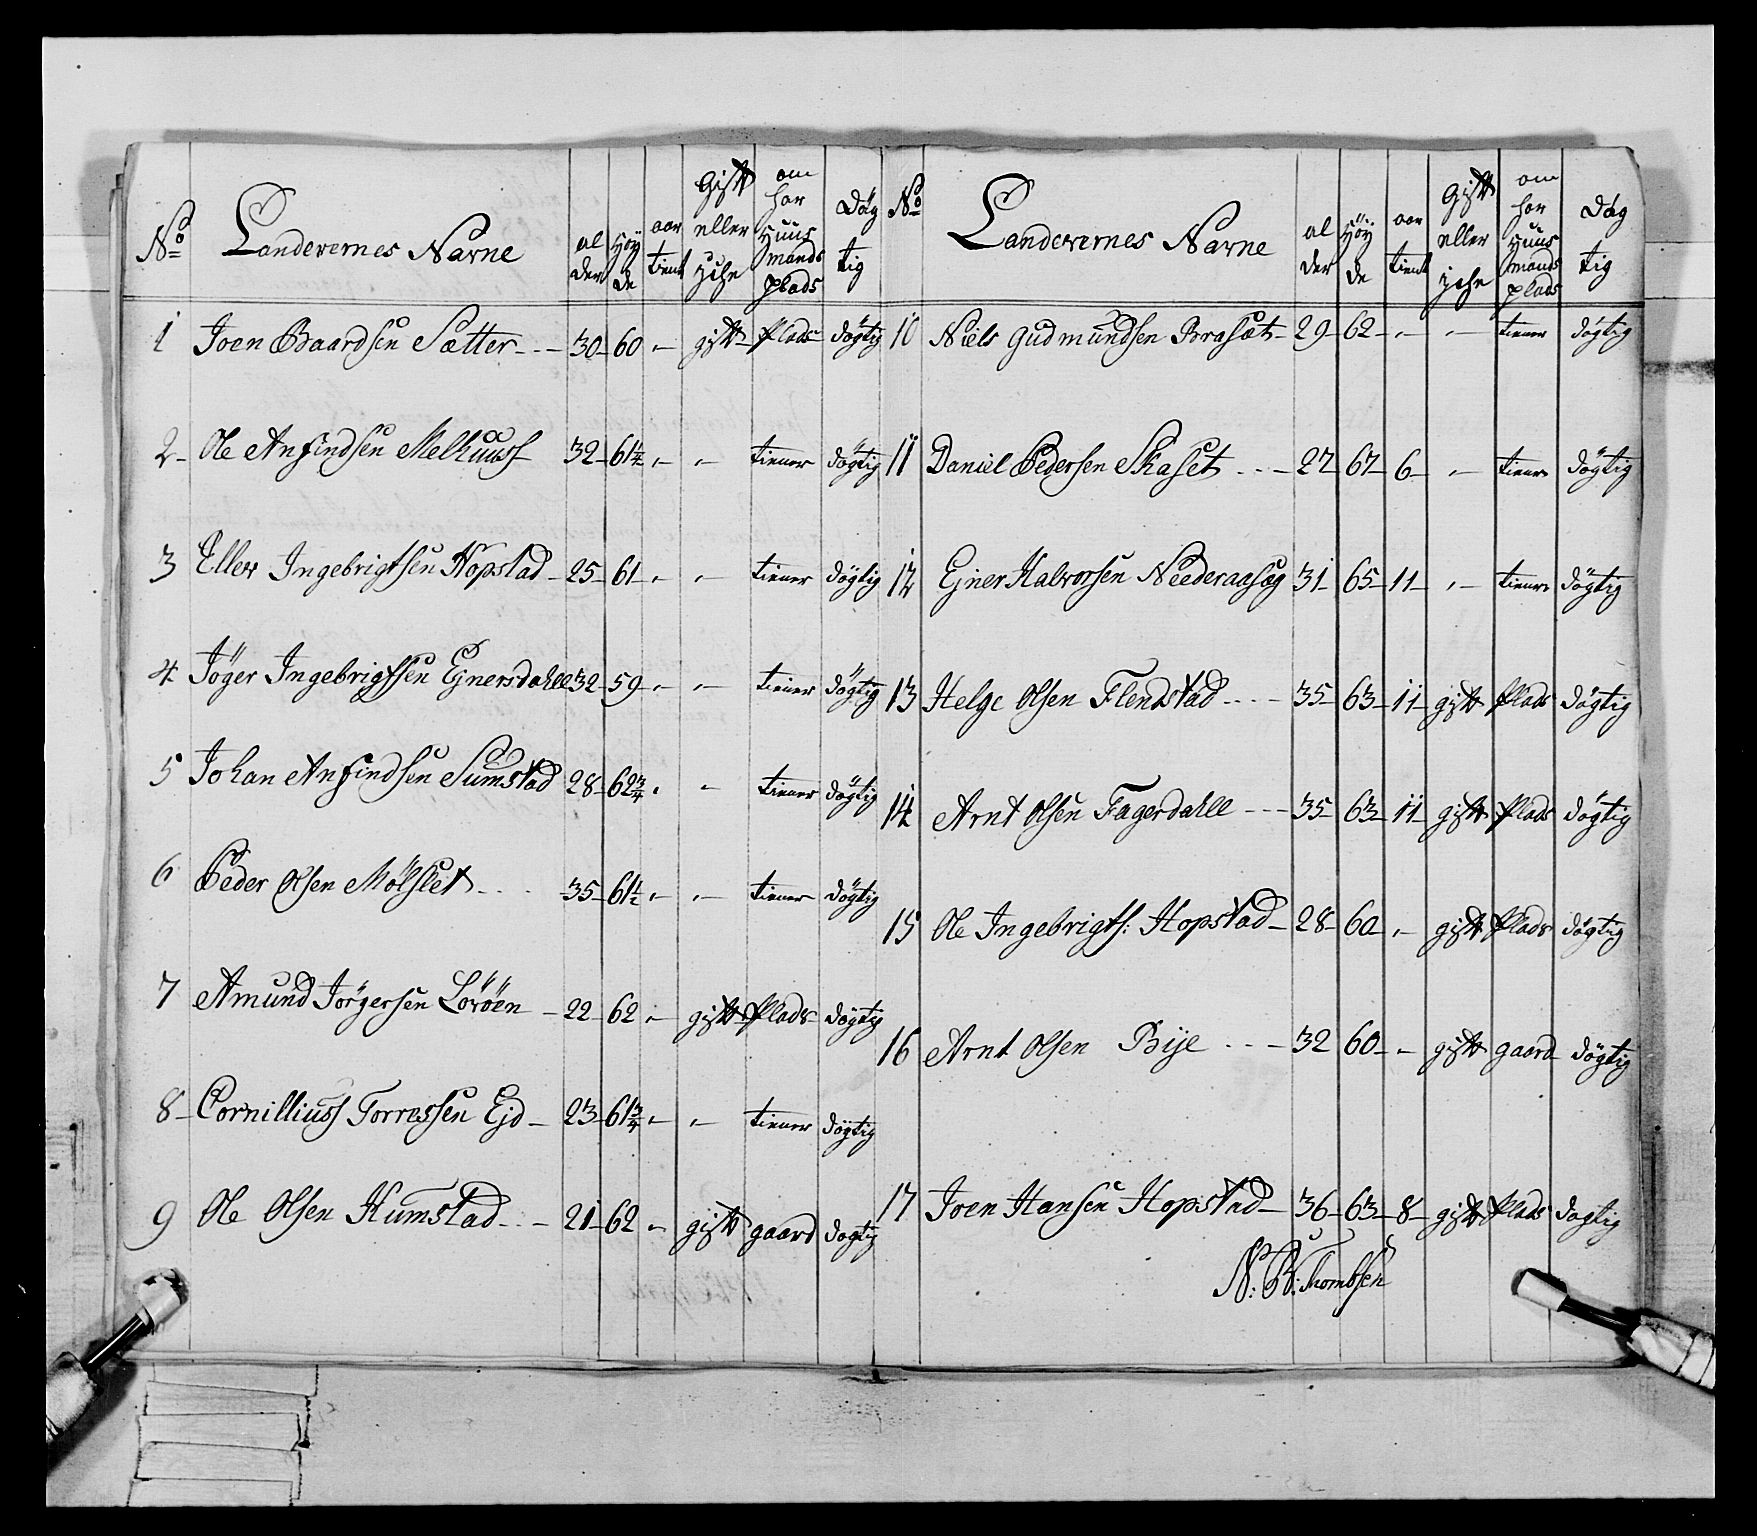 No Landevernes Navne al der Höy de aar tient Gift eller icke om har Huus mands plads Dög tig
1 Joen Baardsen Sætter - - - 30 - 60 - " - gift - Plads - dögtig
2 - Ole Anfindsen Melhuus 32 - 61 1/4 - " - " - tiener dögtig
3 Eller Ingebrigtsen Hopstad - 25 - 61 - " - " - tiener dögtig
4 Jöger Ingebrigtsen Ejnersdahll 32 - 59 - " - " - tiener dögtig
5 Johan Anfindsen Sumstad 28 - 62 3/4 - " - " tiener dögtig
6 Peder Olsen Mölslet - . . . 35 - 61 1/2 - " - " - tiener dögtig
7 Amund Jörgersen Loröen - 22 - 62 - " - gift Plads - dögtig
8 - Cornilliuss Torressen Ejd - 23 - 61 3/4 - " - " - tiener dögtig
9 Ole Olsen Humstad - . - 21 - 62 - " - gift gaard dogtig
No Landevernes Navne al der Höy de aar tient Gift eller icke om har Huus mands plads Dög tig
10 Niels Gudmundsen Brasæt - 29 - 62 - " - " - tiener dögtig
11 Daniel Pedersen Skaset . - - 27 - 67 - 6 - " - tiener dögtig
12 Ejner Halvorsen Neederaasæg 31 - 65 - 11 - " - tiener dögtig
13 Helge Olsen Flendstad . - . - - 35 - 63 - 11 - gift Plads dögtig
14 Arnt Olsen Fagerdahll - - - 35 - 63 - 11 - gift Plads dögtig
15 Ole Ingebrigts: Hopstad - 28 - 60 - " - gift Plads dögtig
16 Arnt Olsen Bije - - - 32 60 - " - gift gaard - dögtig
17 Joen Hansen Hopstad - 36 - 63 - 8 - gift Plads dogtig
N: B: Thombsen